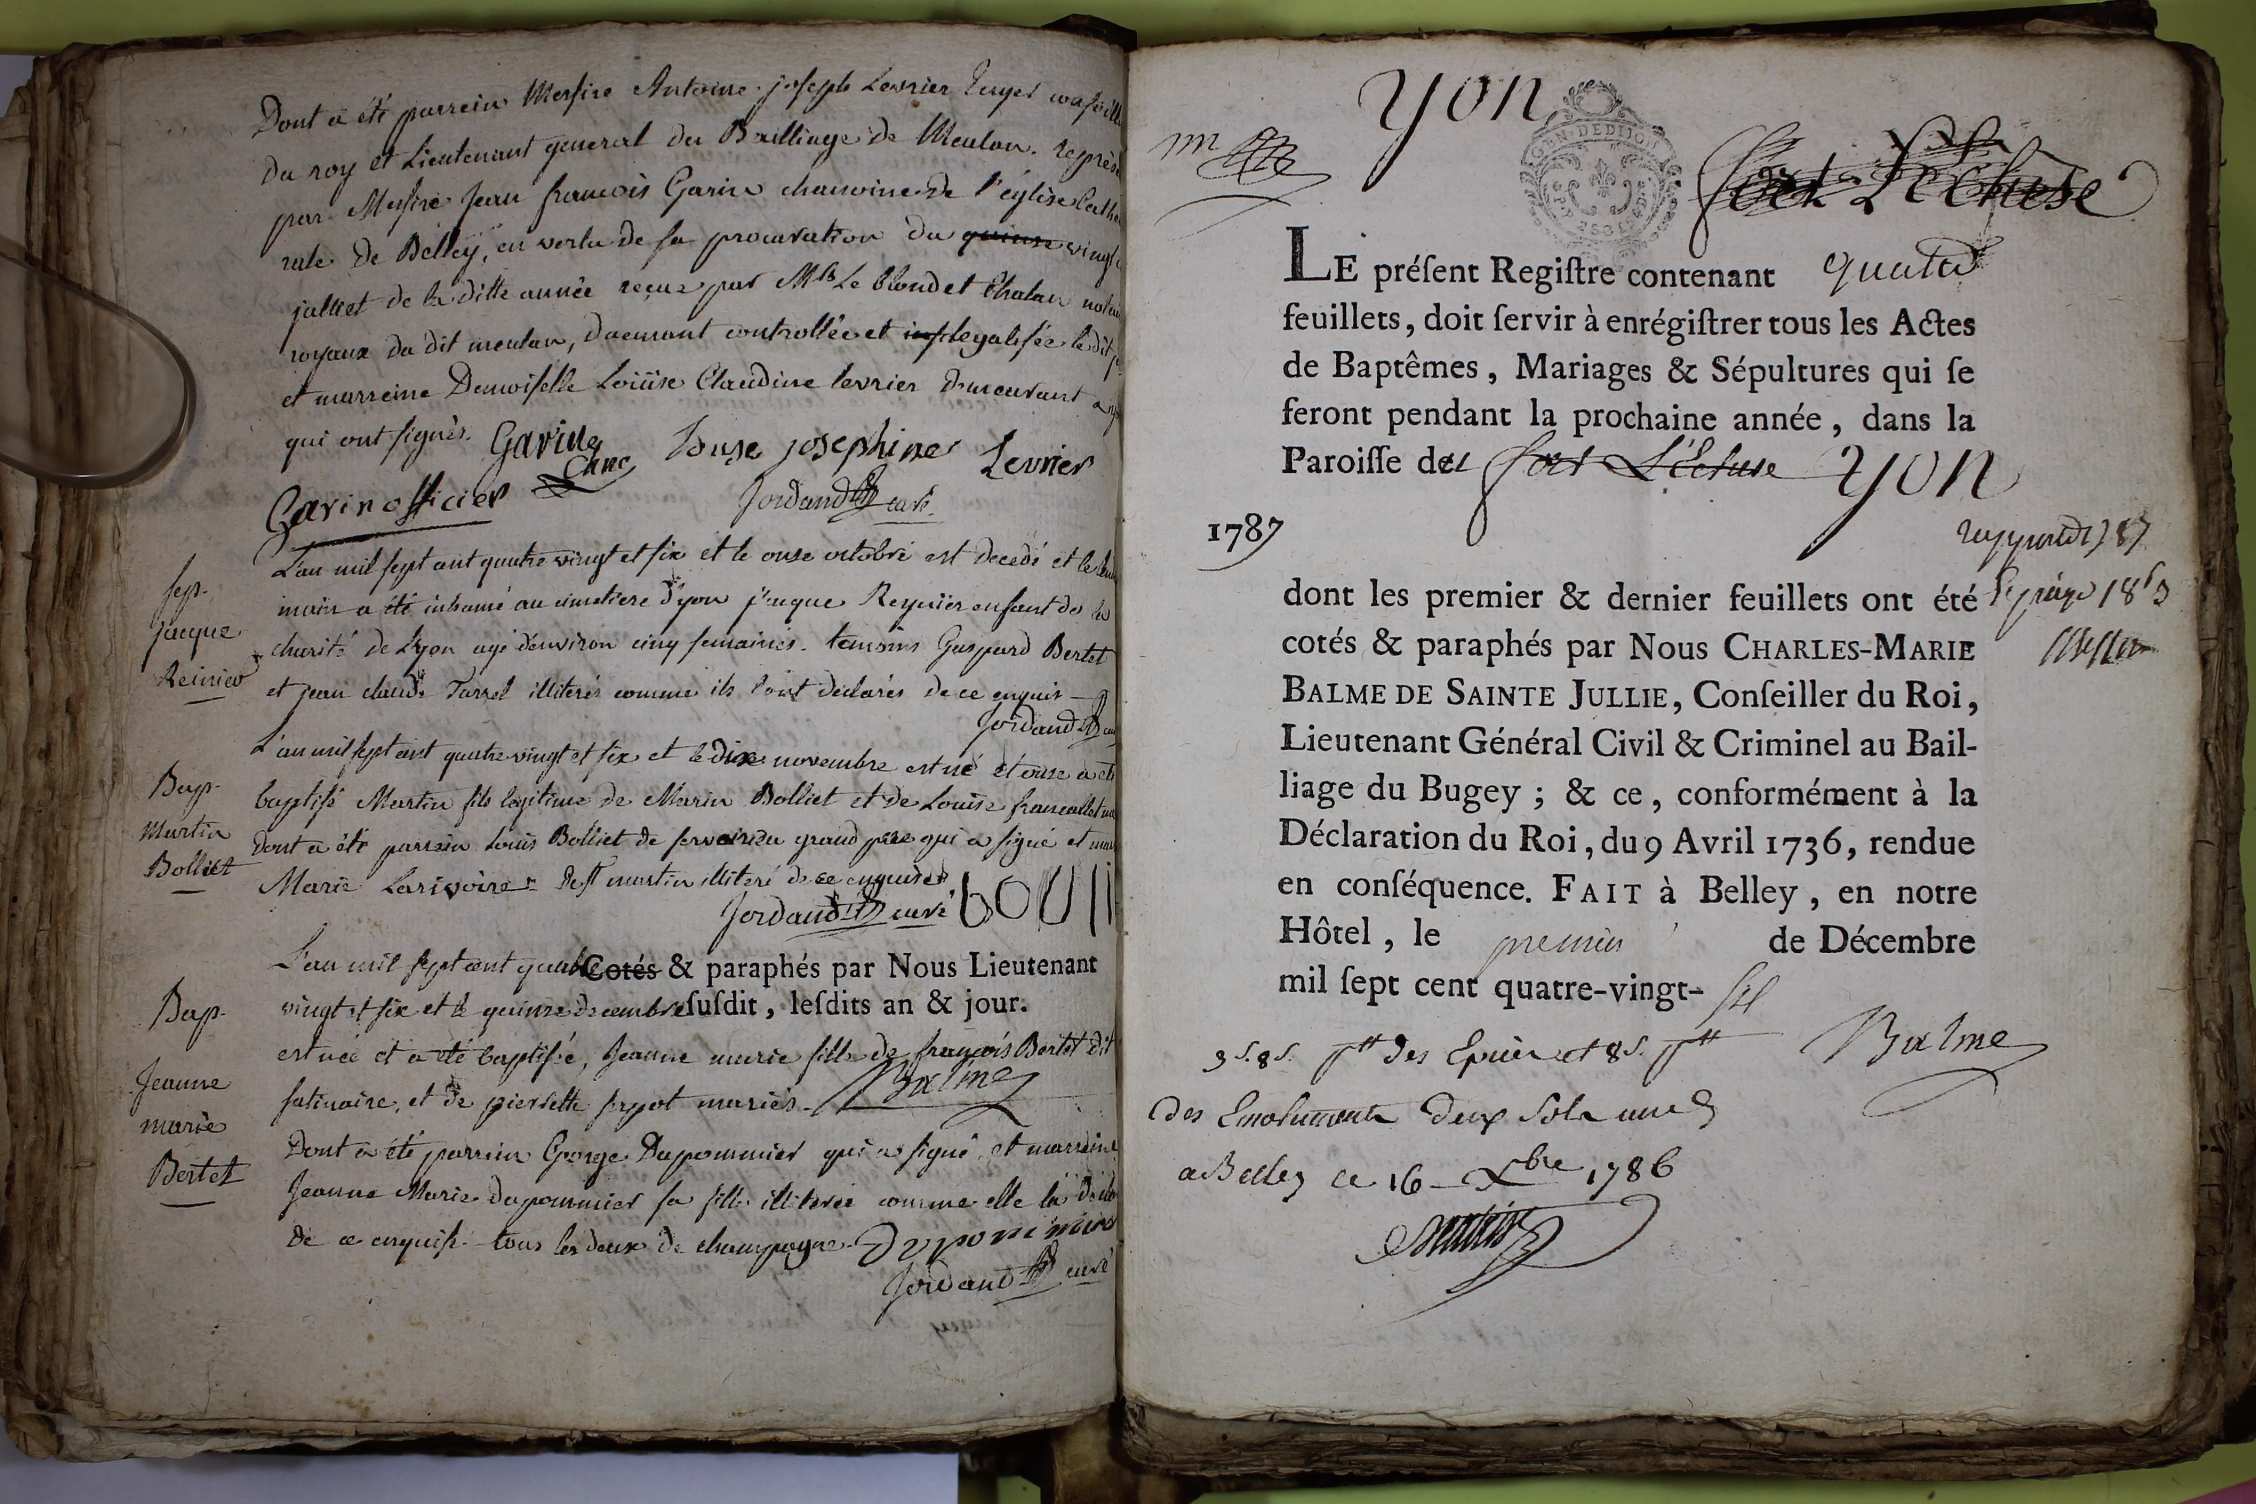 Dont a été parrein Messire Antoine joseph Levrier Ecuyer conseill
du roy et Lieutenant general du Bailliage de Meulan. représe
par Messire Jean francois Garin chanoine de l'église Cathe
rale de Belley, en vertu de sa procuration du quinze vingt
juillet de la ditte année reçue par Mrs Le blond et Chalan notai
royaux du dit meulan, duement controllée et legalisée le dit j
et marreine Demoiselle Loüise Claudine levrier demeurant a
qui ont signés. Garin chne Louise josephine Levrier
Garin officier Jordand curé.
sep.
jacque
Reinier
L'an mil sept cent quatre vingt et six et le onze octobre est decedé et le lende
main a été inhumé au cimetiere d'yon jacque Reynier enfant de la
charité de Lyon agé denviron cinq semaines. temoins Gaspard Bertet
et jean claude Farrel illiterés comme ils l'ont déclarés de ce enquis
Jordand cu
Bap.
Martin
Bolliet
L'an mil sept cent quatre vingt et six et le dix novembre est né et onze a été
baptisé Martin fils legitime de Marin Bolliet et de Louise francallet
dont a été parrein Louis Bolliet de grand pere qui a signé et mar
Marie Larivoire de St martin illiteré de ce enquise.
Jordand curé
Bap.
Jeanne
marie
Bertet
L'an mil sept cent quatre Cotés & paraphés par Nous Lieutenant
vingt et six et le quinze decembre susdit, lesdits an & jour.
est née et a été baptisée, Jeanne marie fille de françois Bertet dit
satinaire, et de pierrette mariés. Balme
Dont a été parrein George Dupommier qui a signé, et marreine
Jeanne Marie dupommier sa fille illiterée comme elle la décla
de ce enquise. tous les deux de champagne. Dupommier
Jordand curé
yon
LE préſent Regiſtre contenant quatre
feuillets, doit ſervir à enrégiſtrer tous les Actes
de Baptêmes, Mariages & Sépultures qui ſe
feront pendant la prochaine année, dans la
Paroiſſe de fort L'Ecluse yon
1787
dont les premier & dernier feuillets ont été
cotés & paraphés par Nous CHARLES-MARIE
BALME DE SAINTE JULLIE, Conſeiller du Roi,
Lieutenant Général Civil & Criminel au Bail-
liage du Bugey ; & ce, conformément à la
Déclaration du Roi, du 9 Avril 1736, rendue
en conſéquence. FAIT à Belley, en notre
Hôtel, le premier de Décembre
mil ſept cent quatre-vingt- six
Balme
des Emoluments deux sols
a Belley ce 16 Xbre 1786